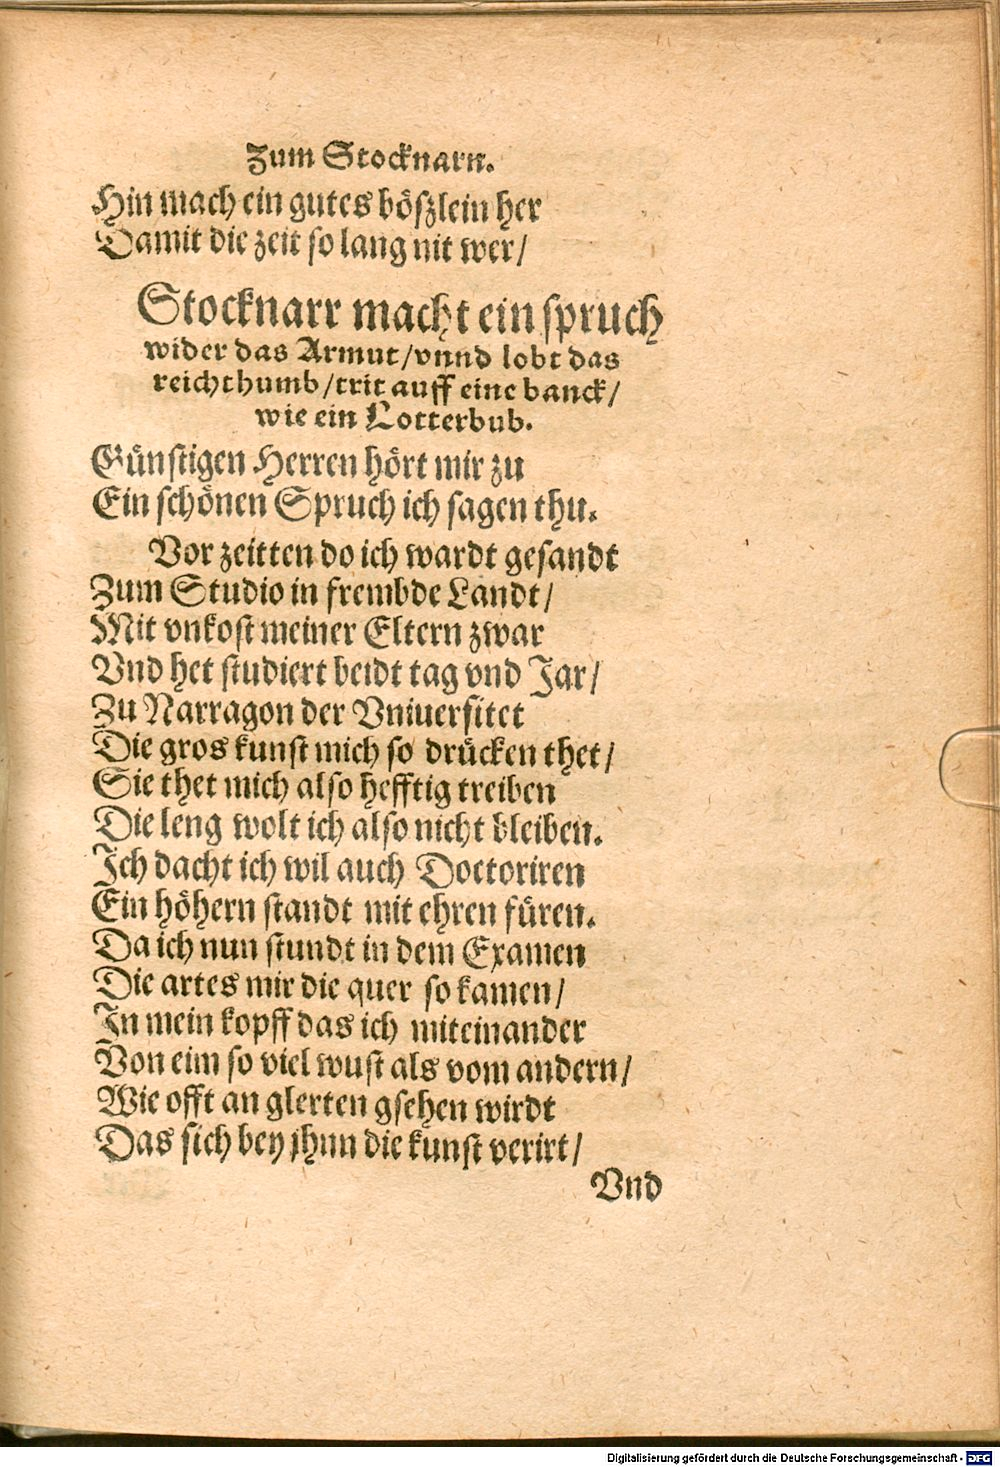 Zum Stocknarn.
Hin mach ein gutes böszlein her
Damit die zeit so lang nit wer/
Stocknarr macht ein spruch
wider das Armut/vnnd lobt das
reichthumb/trit auff eine banck/
wie ein Lotterbub.
Günstigen Herren hört mir zu
Ein schönen Spruch ich sagen thu.
Vor zeitten do ich wardt gesandt
Zum Studio in frembde Landt/
Mit vnkost meiner Eltern zwar
Vnd het studiert beidt tag vnd Jar/
Zu Narragon der Vniuersitet
Die gros kunst mich so drücken thet/
Sie thet mich also hefftig treiben
Die leng wolt ich also nicht bleiben.
Ich dacht ich wil auch Doctoriren
Ein höhern standt mit ehren füren.
Da ich nun stundt in dem Examen
Die artes mir die quer so kamen/
In mein kopff das ich miteinander
Von eim so viel wust als vom andern/
Wie offt an glerten gsehen wirdt
Das sich bey jhnn die kunst verirt/
Vnd
Digitalisierung gefördert durch die Deutsche Forschungsgemeinschaft - DFG